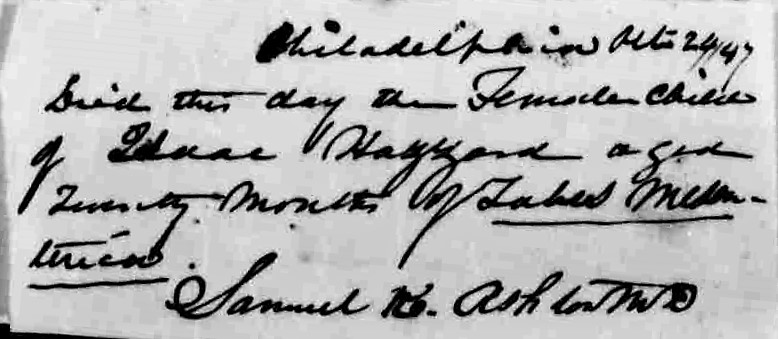 Philadelphia Octo 24/47
Died this day the Female Child
of Isaac Hazzard aged
Twenty Months of Tabes Mesen-
terica.
Samuel K. Ashton MD